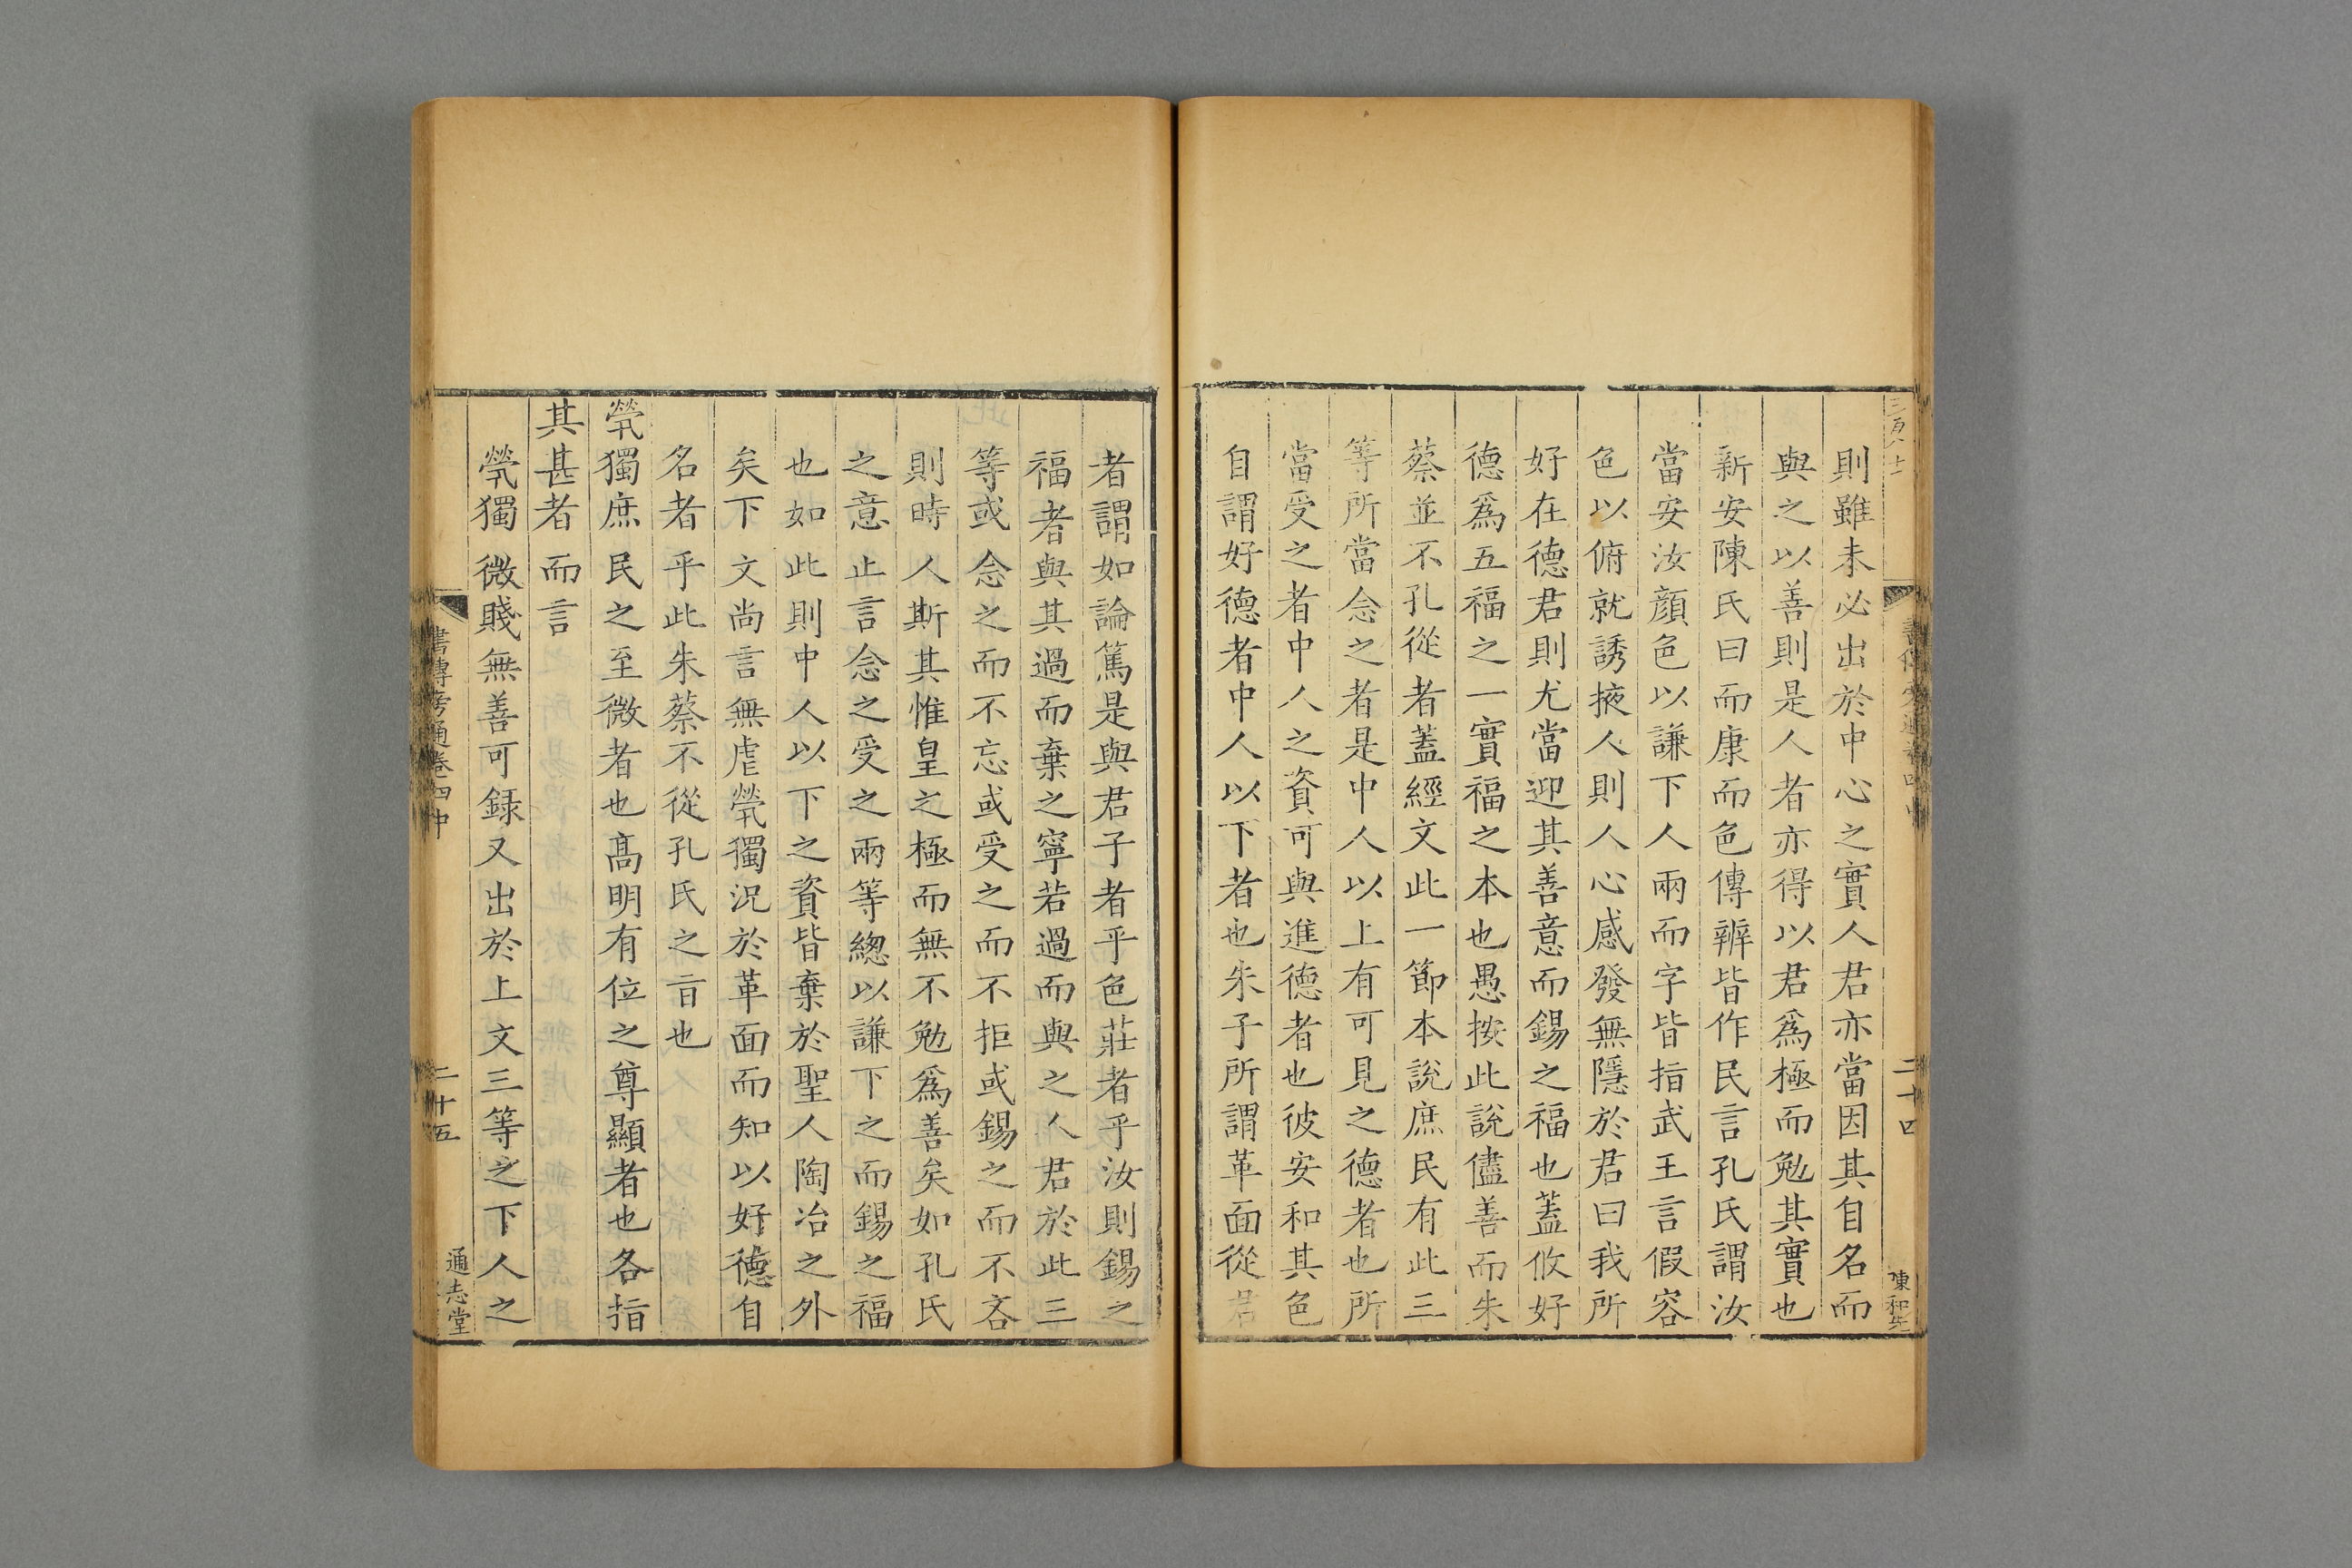 則雖未必出於中心之實人君亦當因其自名而
與之以善則是人者亦得以君爲極而勉其實也
新安陳氏曰而康而色傳辨皆作民言孔氏謂汝
當安汝顔色以謙下人兩而字皆指武王言假容
色以俯就誘掖人則人心感發無隱於君曰我所
好在德君則尤當迎其善意而錫之福也蓋攸好
德爲五福之一實福之本也愚按此說儘善而朱
蔡並不孔從者蓋經文此一節本說庶民有此三
等所當念之者是中人以上有可見之德者也所
當受之者中人之資可與進德者也彼安和其色
自謂好德者中人以下者也朱子所謂革面從君
二十四
者謂如論篤是與君子者乎色莊者乎汝則錫之
福者與其過而棄之寧若過而與之人君於此三
等或念之而不忘或受之而不拒或錫之而不吝
則時人斯其惟皇之極而無不勉爲善矣如孔氏
之意止言念之受之兩等緫以謙下之而錫之福
也如此則中人以下之資皆棄於聖人陶冶之外
矣下文尚言無虐煢獨況於革面而知以好德自
名者乎此朱蔡不從孔氏之旨也
煢獨庶民之至微者也高明有位之尊顯者也各指
其甚者而言
煢獨微賤無善可録又出於上文三等之下人之
書傳旁通卷四中
二十五
通志堂